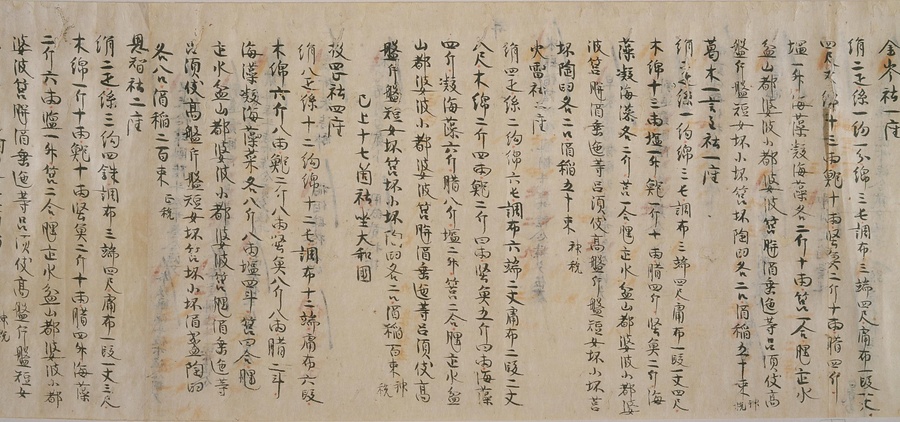 金岑社一座
絹二疋絲一約一分綿三屯調布三端四尺庸布一段一丈
四尺木綿十三両鰒十両堅魚二斤十両腊四斤
塩一升海藻凝海藻各二斤十両筥一合𤭯疋水
盆山都婆波小都婆波筥瓶酒垂匜等呂須伎高
盤片盤短女坏小坏筥坏陶臼各二口酒稲五十束神税
葛木一言主社一座
絹二疋絲一約綿三屯調布三端四尺庸布一段一丈四尺
木綿十三両塩一升鰒一斤十両腊四斤堅魚二斤海
藻凝海藻各二斤筥一合𤭯疋水盆山都婆波小都婆
波筥瓶酒垂匜等呂須伎高盤片盤短女坏小坏筥
坏陶臼各二口酒稲五十束神税
火雷社二座
絹四疋絲二約綿六屯調布六端二丈庸布二段二丈
八尺木綿二斤四両鰒二斤四両堅魚五斤四両海藻
四斤凝海藻六斤腊八斤塩二升筥二合𤭯疋水盆
山都婆波小都婆波筥瓶酒垂匜等呂須伎高
盤片盤短女坏筥坏小坏陶臼各二口酒稲百束神税
已上十七箇社坐大和国
枚岡社四座
絹八疋絲十二約綿十二屯調布十二端庸布六段
木綿六斤八両鰒二斤八両堅魚八斤八両腊二斗
海藻凝海藻菜各八斤八両塩四斗筥四合𤭯
疋水盆山都婆波小都婆波筥𤭯酒垂匜等
呂須伎高盤片盤短女坏筥坏小坏酒盞陶臼
各八口酒稲二百束正税
恩智社二座
絹二疋絲三約四銖調布三端四尺庸布一段一丈三尺
木綿一斤十両鰒十両堅魚二斤十両腊四升海藻
二斤六両塩一升筥二合𤭯疋水盆山都婆波小都
婆波筥瓶酒垂匜等呂須伎高盤片盤短女